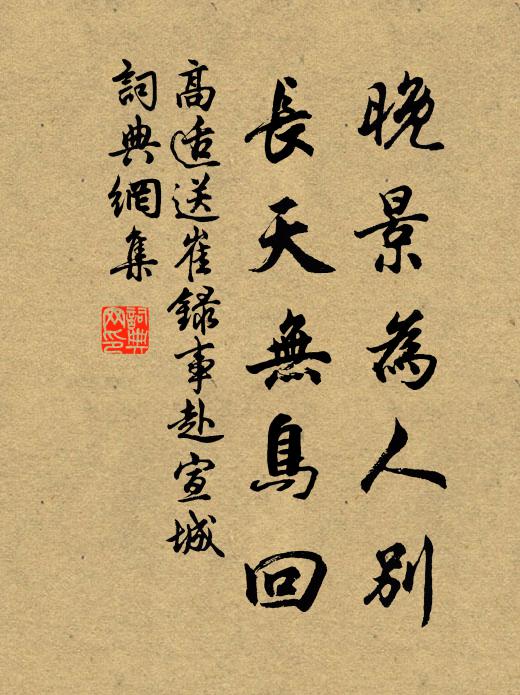 晚景為人別
長天無鳥回
高适送崔錄事赴宣城
詞典網集
詞典網印